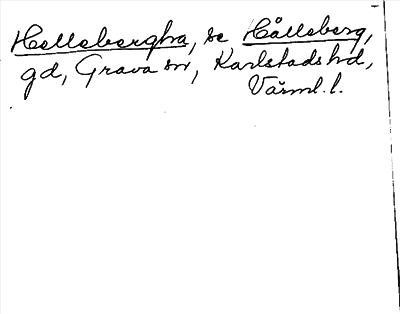 Hallebergha, se Hålleberg,
gd, Grava sn, Karlstads hd,
Värml. l.